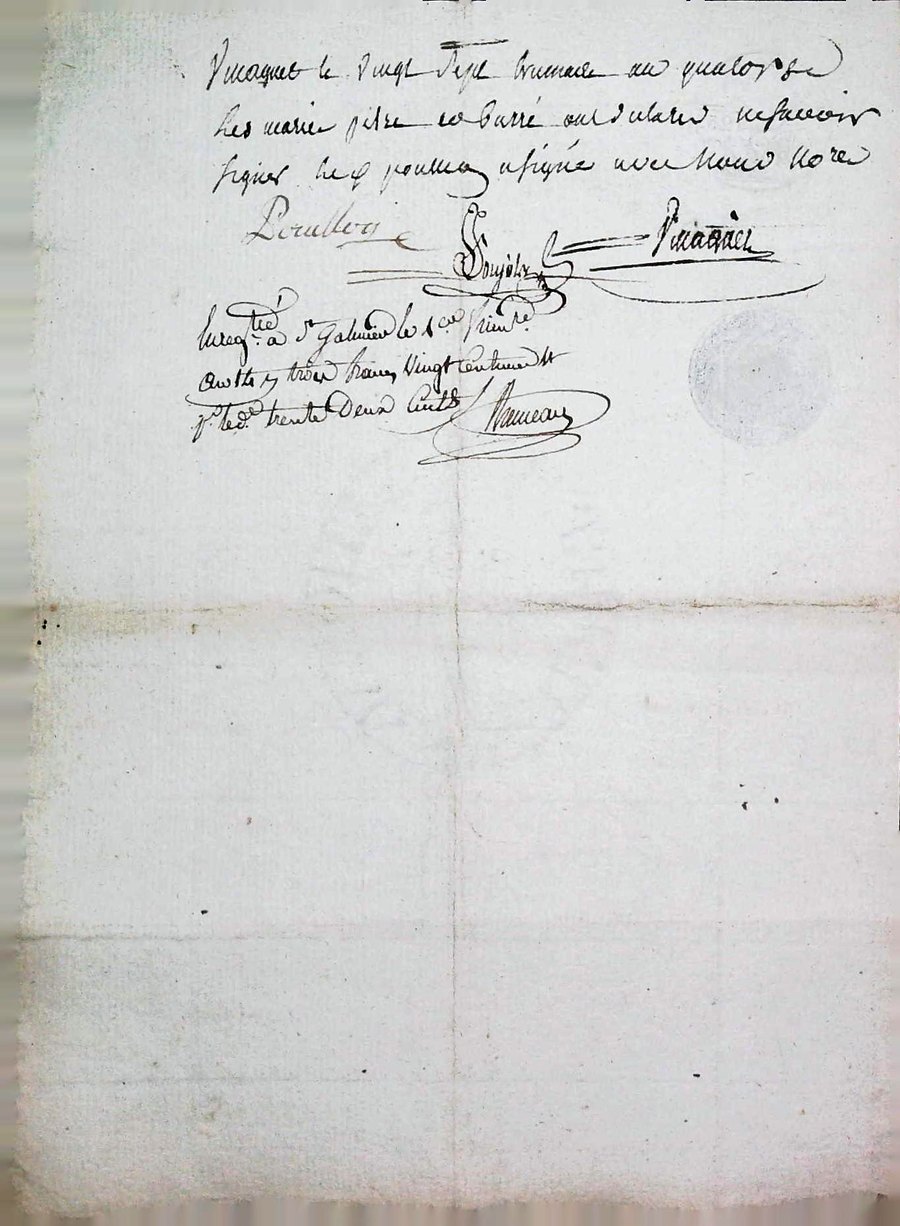 Vinagnet le vingt sept brumaire an quatorze
Les mariés pitre et Barré ont déclaré ne savoir
signer le d poullon a signé avec nous nore
Poullon
Vinagnet
Enreg.tré à St Galmier le 1er frim.re
an 14 r trois francs vingt centimes et
p.r red.e trente Deux Cent.s
Rameau